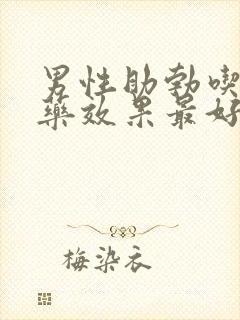 男性助勃喫
藥效果最好
梅染衣